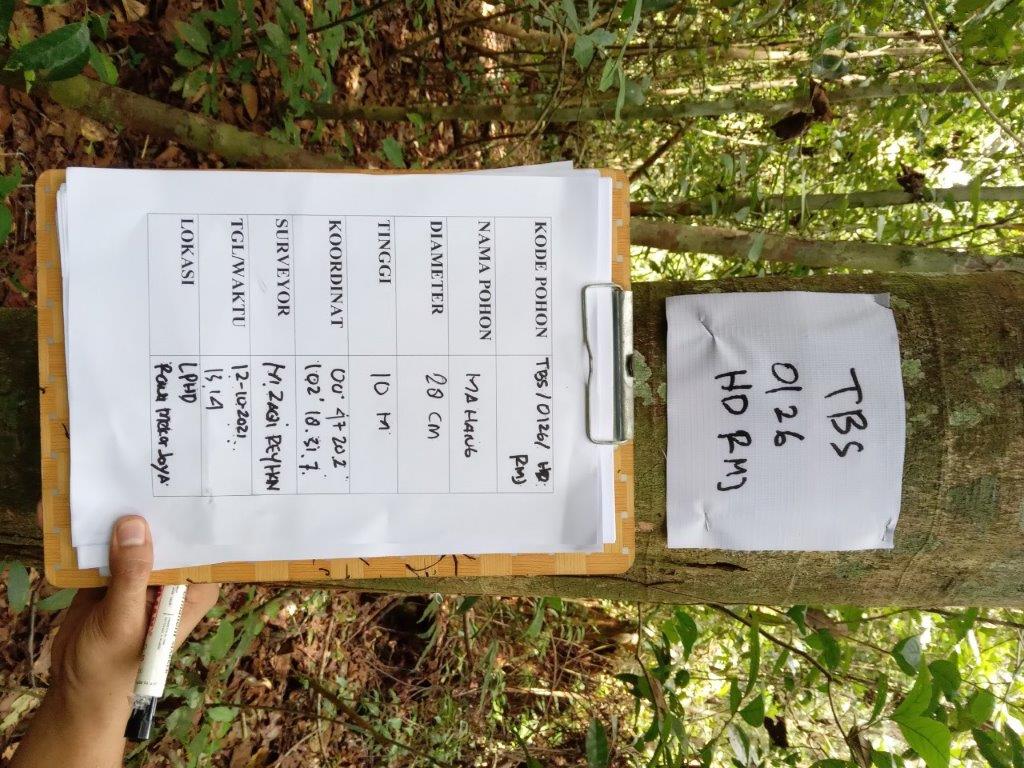 TBS
0126
HD RMJ
KODE POHON TBS/0126/ HD
RMJ
NAMA POHON MAHANG
DIAMETER 28 CM
TINGGI 10 M
KOORDINAT 00° 47 20.2"
102° 18.31.7"
SURVEYOR M. ZAQI REYHAN
TGL/WAKTU 12-10-2021
13.14
LOKASI LPHD
Rawa Mekar Joya